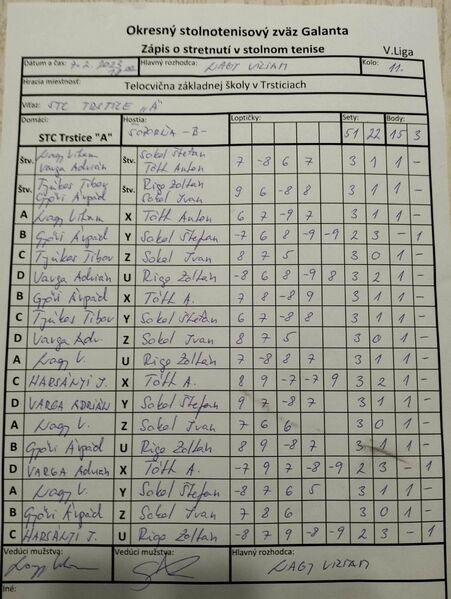 Okresný stolnotenisový zväz Galanta
Zápis o stretnutí v stolnom tenise V.Liga
Datum a čas: 7.2.2023 Hlavný rozhodca: NAGY VILIAM Kolo: 11.
Hracia miestnosť: Telocvična základnej školy v Trsticiach
Víťaz: STC TRSTICE "A"
Domáci: Hostia: Loptičky: Sety: Body:
STC Trstice "A" SOPORŇA -B- 51 22 15 3
Štv. Nagy Viliam Varga Adrián Štv. Sokol Štefan Tóth Anton 7 -8 6 7 3 1 1 -
Štv. Tyúkos Tibor Győri Árpád Štv. Rigo Zoltán Sokol Ivan 9 6 -8 8 3 1 1 -
A Nagy Viliam X Tóth Anton 6 7 -9 7 3 1 1 -
B Győri Árpád Y Sokol Štefan -7 6 8 -9 -9 2 3 - 1
C Tyúkos Tibor Z Sokol Ivan 8 7 5 3 0 1 -
D Varga Adrián U Rigo Zoltán -8 6 8 -9 8 3 2 1 -
B Győri Árpád X Tóth A. 7 8 -8 9 3 1 1 -
C Tyúkos Tibor Y Sokol Štefan 6 7 -8 8 3 1 1 -
D Varga Adr. Z Sokol Ivan 8 7 5 3 0 1 -
A Nagy V. U Rigo Zoltán 7 -8 8 7 3 1 1 -
C HARSÁNYI J. X Tóth A. 8 9 -7 -7 9 3 2 1 -
D VARGA ADRIÁN Y Sokol Štefan 9 7 -8 7 3 1 1 -
A Nagy V. Z Sokol Ivan 7 6 6 3 0 1 -
B Győri Árpád U Rigo Zoltán 8 9 -8 7 3 1 1 -
D VARGA Adrian X Tóth A. -7 9 7 -8 -9 2 3 - 1
A Nagy V. Y Sokol Štefan -8 7 6 5 3 1 1 -
B Győri Árpád Z Sokol Ivan 7 8 6 3 0 1 -
C HARSÁNYI J. U Rigo Zoltán -8 7 9 -8 -9 2 3 - 1
Vedúci mužstva: Vedúci mužstva: Hlavný rozhodca:
NAGY VILIAM
Iné: